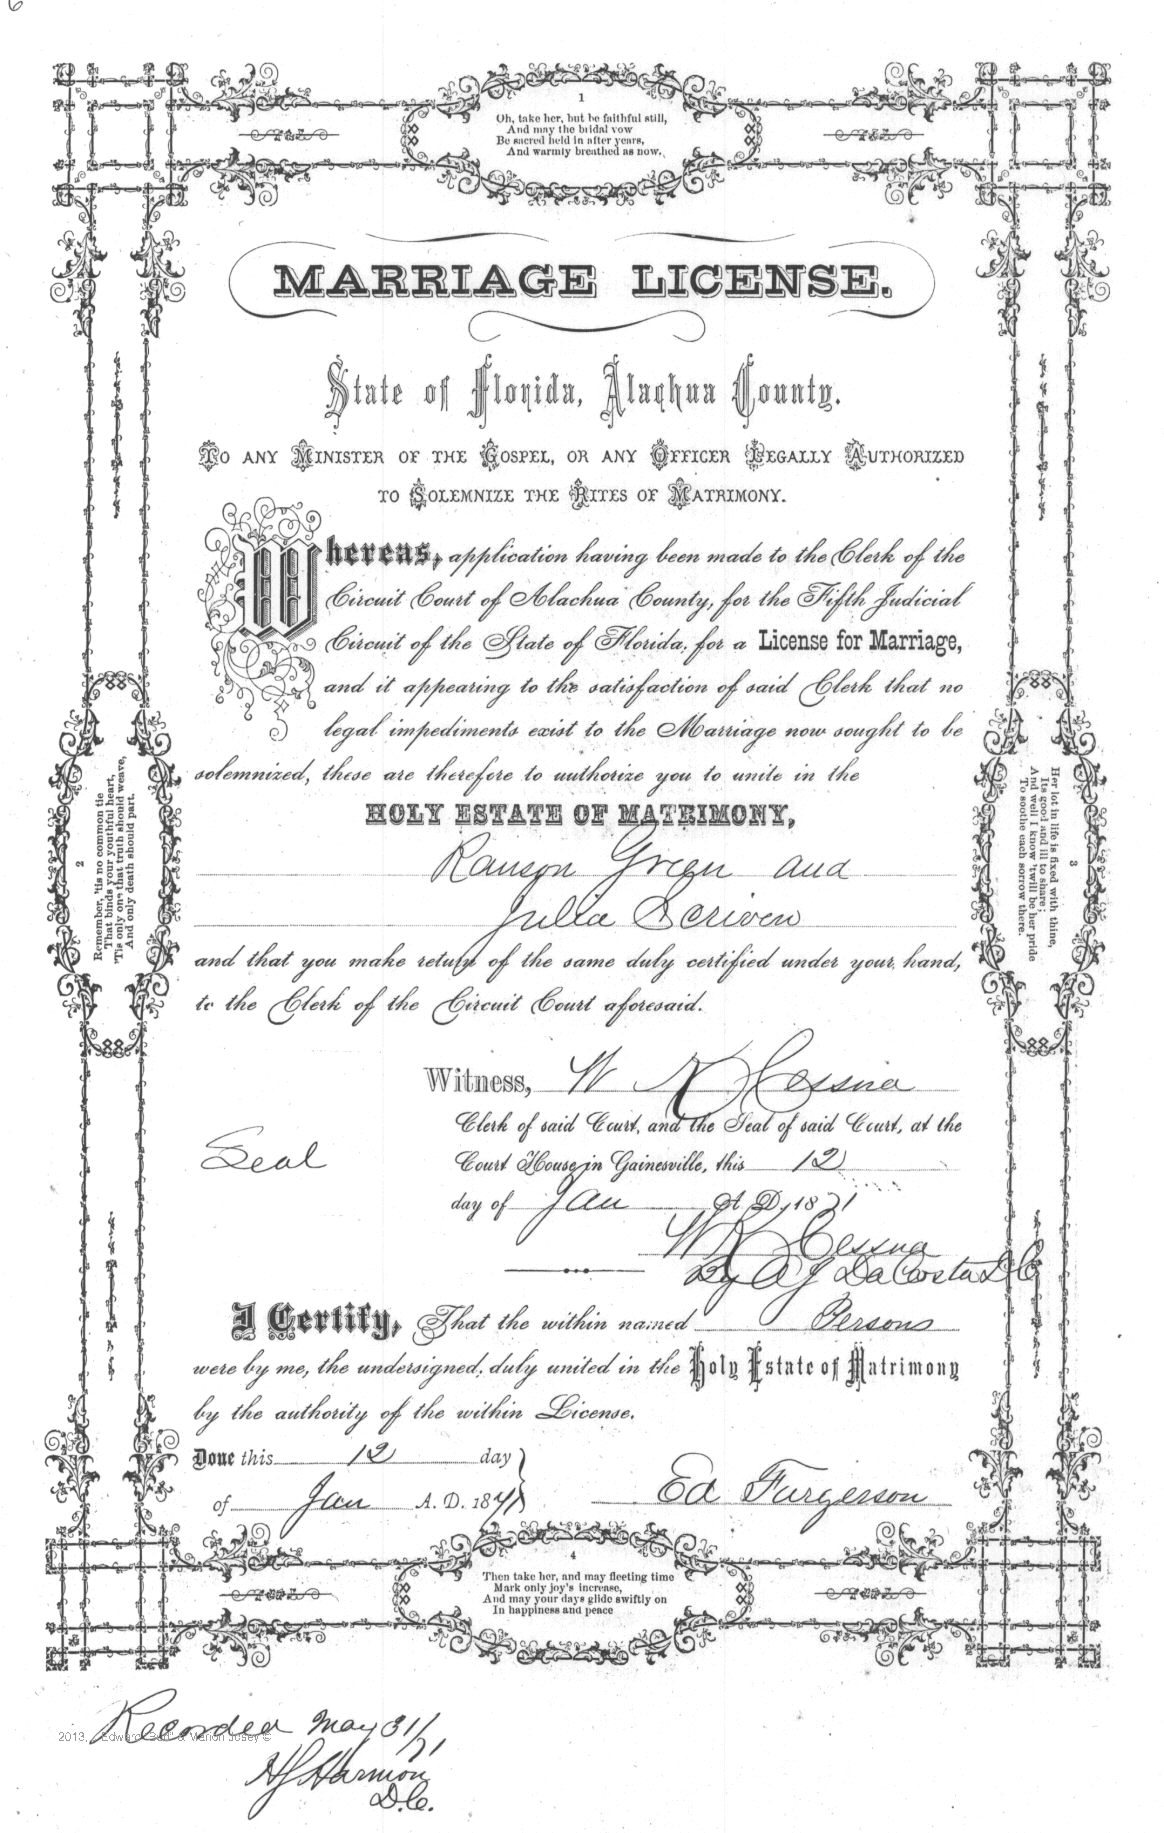 6
1
Oh, take her, but be faithful still,
And may the bridal vow
Be sacred held in after years,
And warmly breathed as now.
MARRIAGE LICENSE.
State of Florida, Alachua County.
TO ANY MINISTER OF THE GOSPEL, OR ANY OFFICER LEGALLY AUTHORIZED
TO SOLEMNIZE THE RITES OF MATRIMONY.
Whereas, application having been made to the Clerk of the
Circuit Court of Alachua County, for the Fifth Judicial
Circuit of the State of Florida, for a License for Marriage,
and it appearing to the satisfaction of said Clerk that no
legal impediments exist to the Marriage now sought to be
solemnized, these are therefore to authorize you to unite in the
HOLY ESTATE OF MATRIMONY,
Ranson Green and
Julia Scriven
and that you make return of the same duly certified under your hand,
to the Clerk of the Circuit Court aforesaid.
Witness, W K Cessna
Clerk of said Court, and the Seal of said Court, at the
Seal
Court House in Gainesville, this 12
day of Jan A D, 1871
W K Cessna
By A J DaCosta D C
I Certify, That the within named Persons
were by me, the undersigned, duly united in the Holy Estate of Matrimony
by the authority of the within License.
Done this 12 day
of Jan A. D. 1871
Ed Furgerson
2
Remember, 'tis no common tie
That binds your youthful heart,
'Tis only one that truth should weave,
And only death should part.
3
Her lot in life is fixed with thine,
Its good and ill to share;
And well I know 'twill be her pride
To soothe each sorrow there.
4
Then take her, and may fleeting time
Mark only joy's increase,
And may your days glide swiftly on
In happiness and peace
Recorded May 31/71
2013, Edward & Marion Josey ©
H J Harmon
D.C.